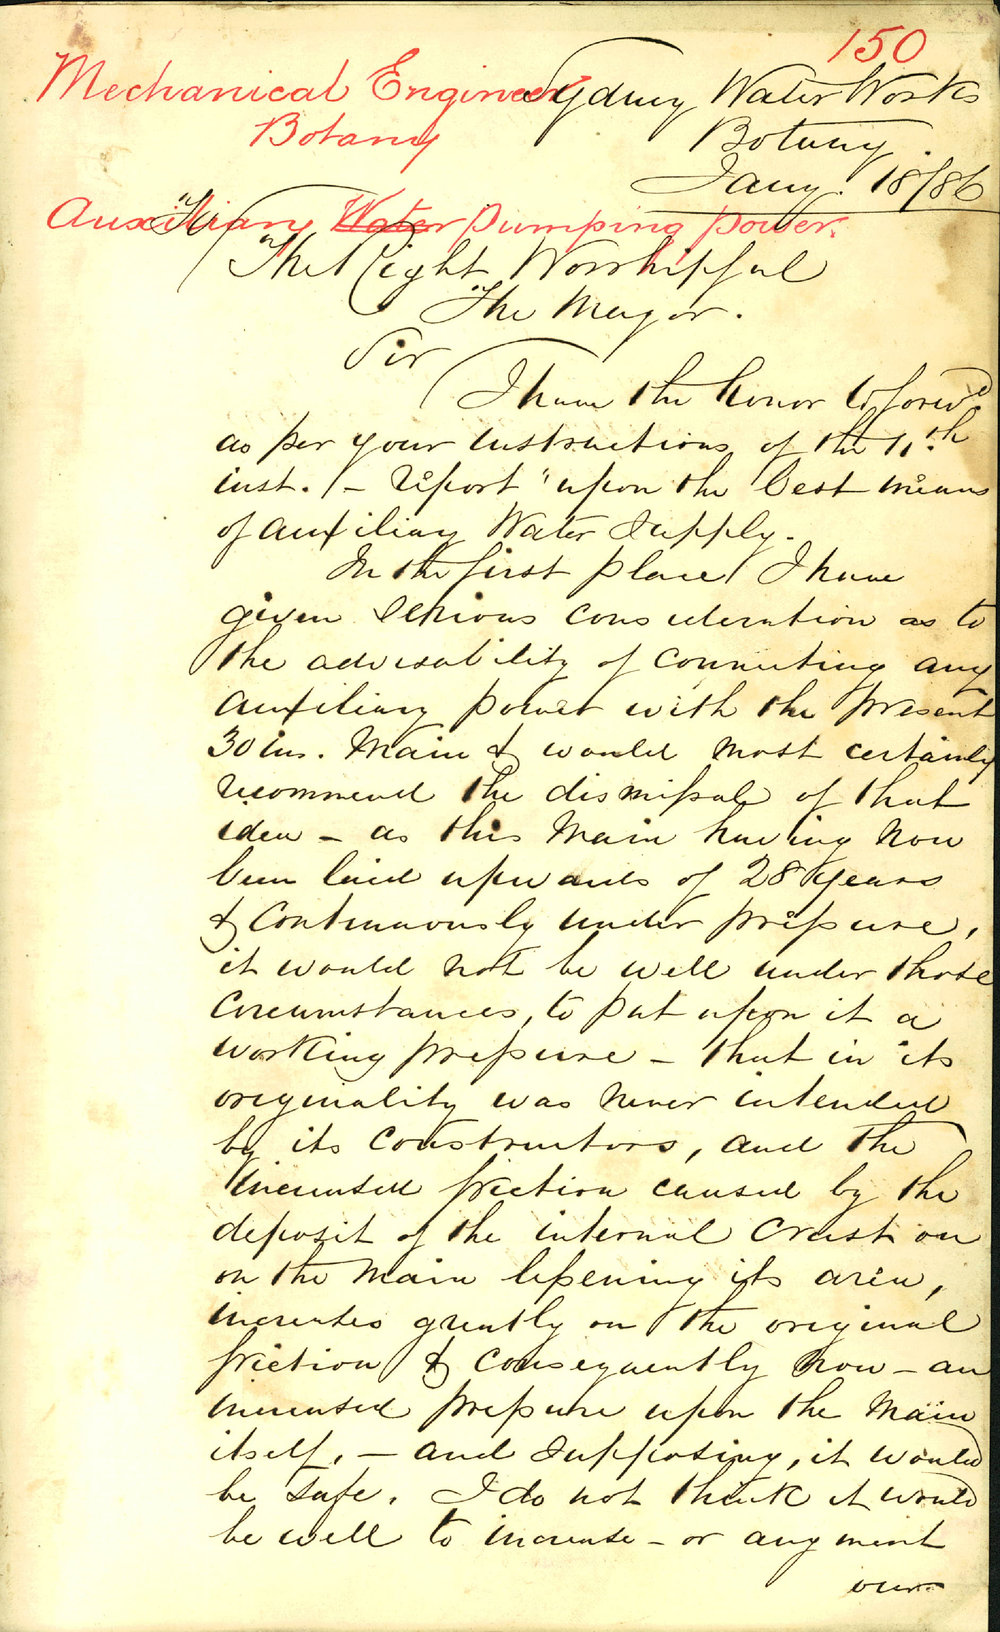 150
Mechanical Engineer
Botany
Sydney Water Works
Botany.
Jany. 18/86
Auxiliary Water Pumping Power.
To
The Right Worshipful
The Mayor.
Sir
I have the honor to forwd
as per your instructions of the 11th
inst. - report "upon the best means
of auxiliary Water Supply.
In the first place I have
given serious consideration as to
the advisability of connecting any
auxiliary power with the present
30 ins. Main & would most certainly
recommend the dismissal of that
idea - as this Main having now
been laid upwards of 28 years
& continuously under pressure,
it would not be well under those
circumstances, to put upon it a
working pressure - that in its
originality was never intended
by its constructors, and the
increased friction caused by the
deposit of the internal crust on
on the Main lessening its area,
increases greatly on the original
friction & consequently now - an
increased pressure upon the Main
itself. - and supposing, it would
be safe. I do not think it would
be well to increase - or augment
our